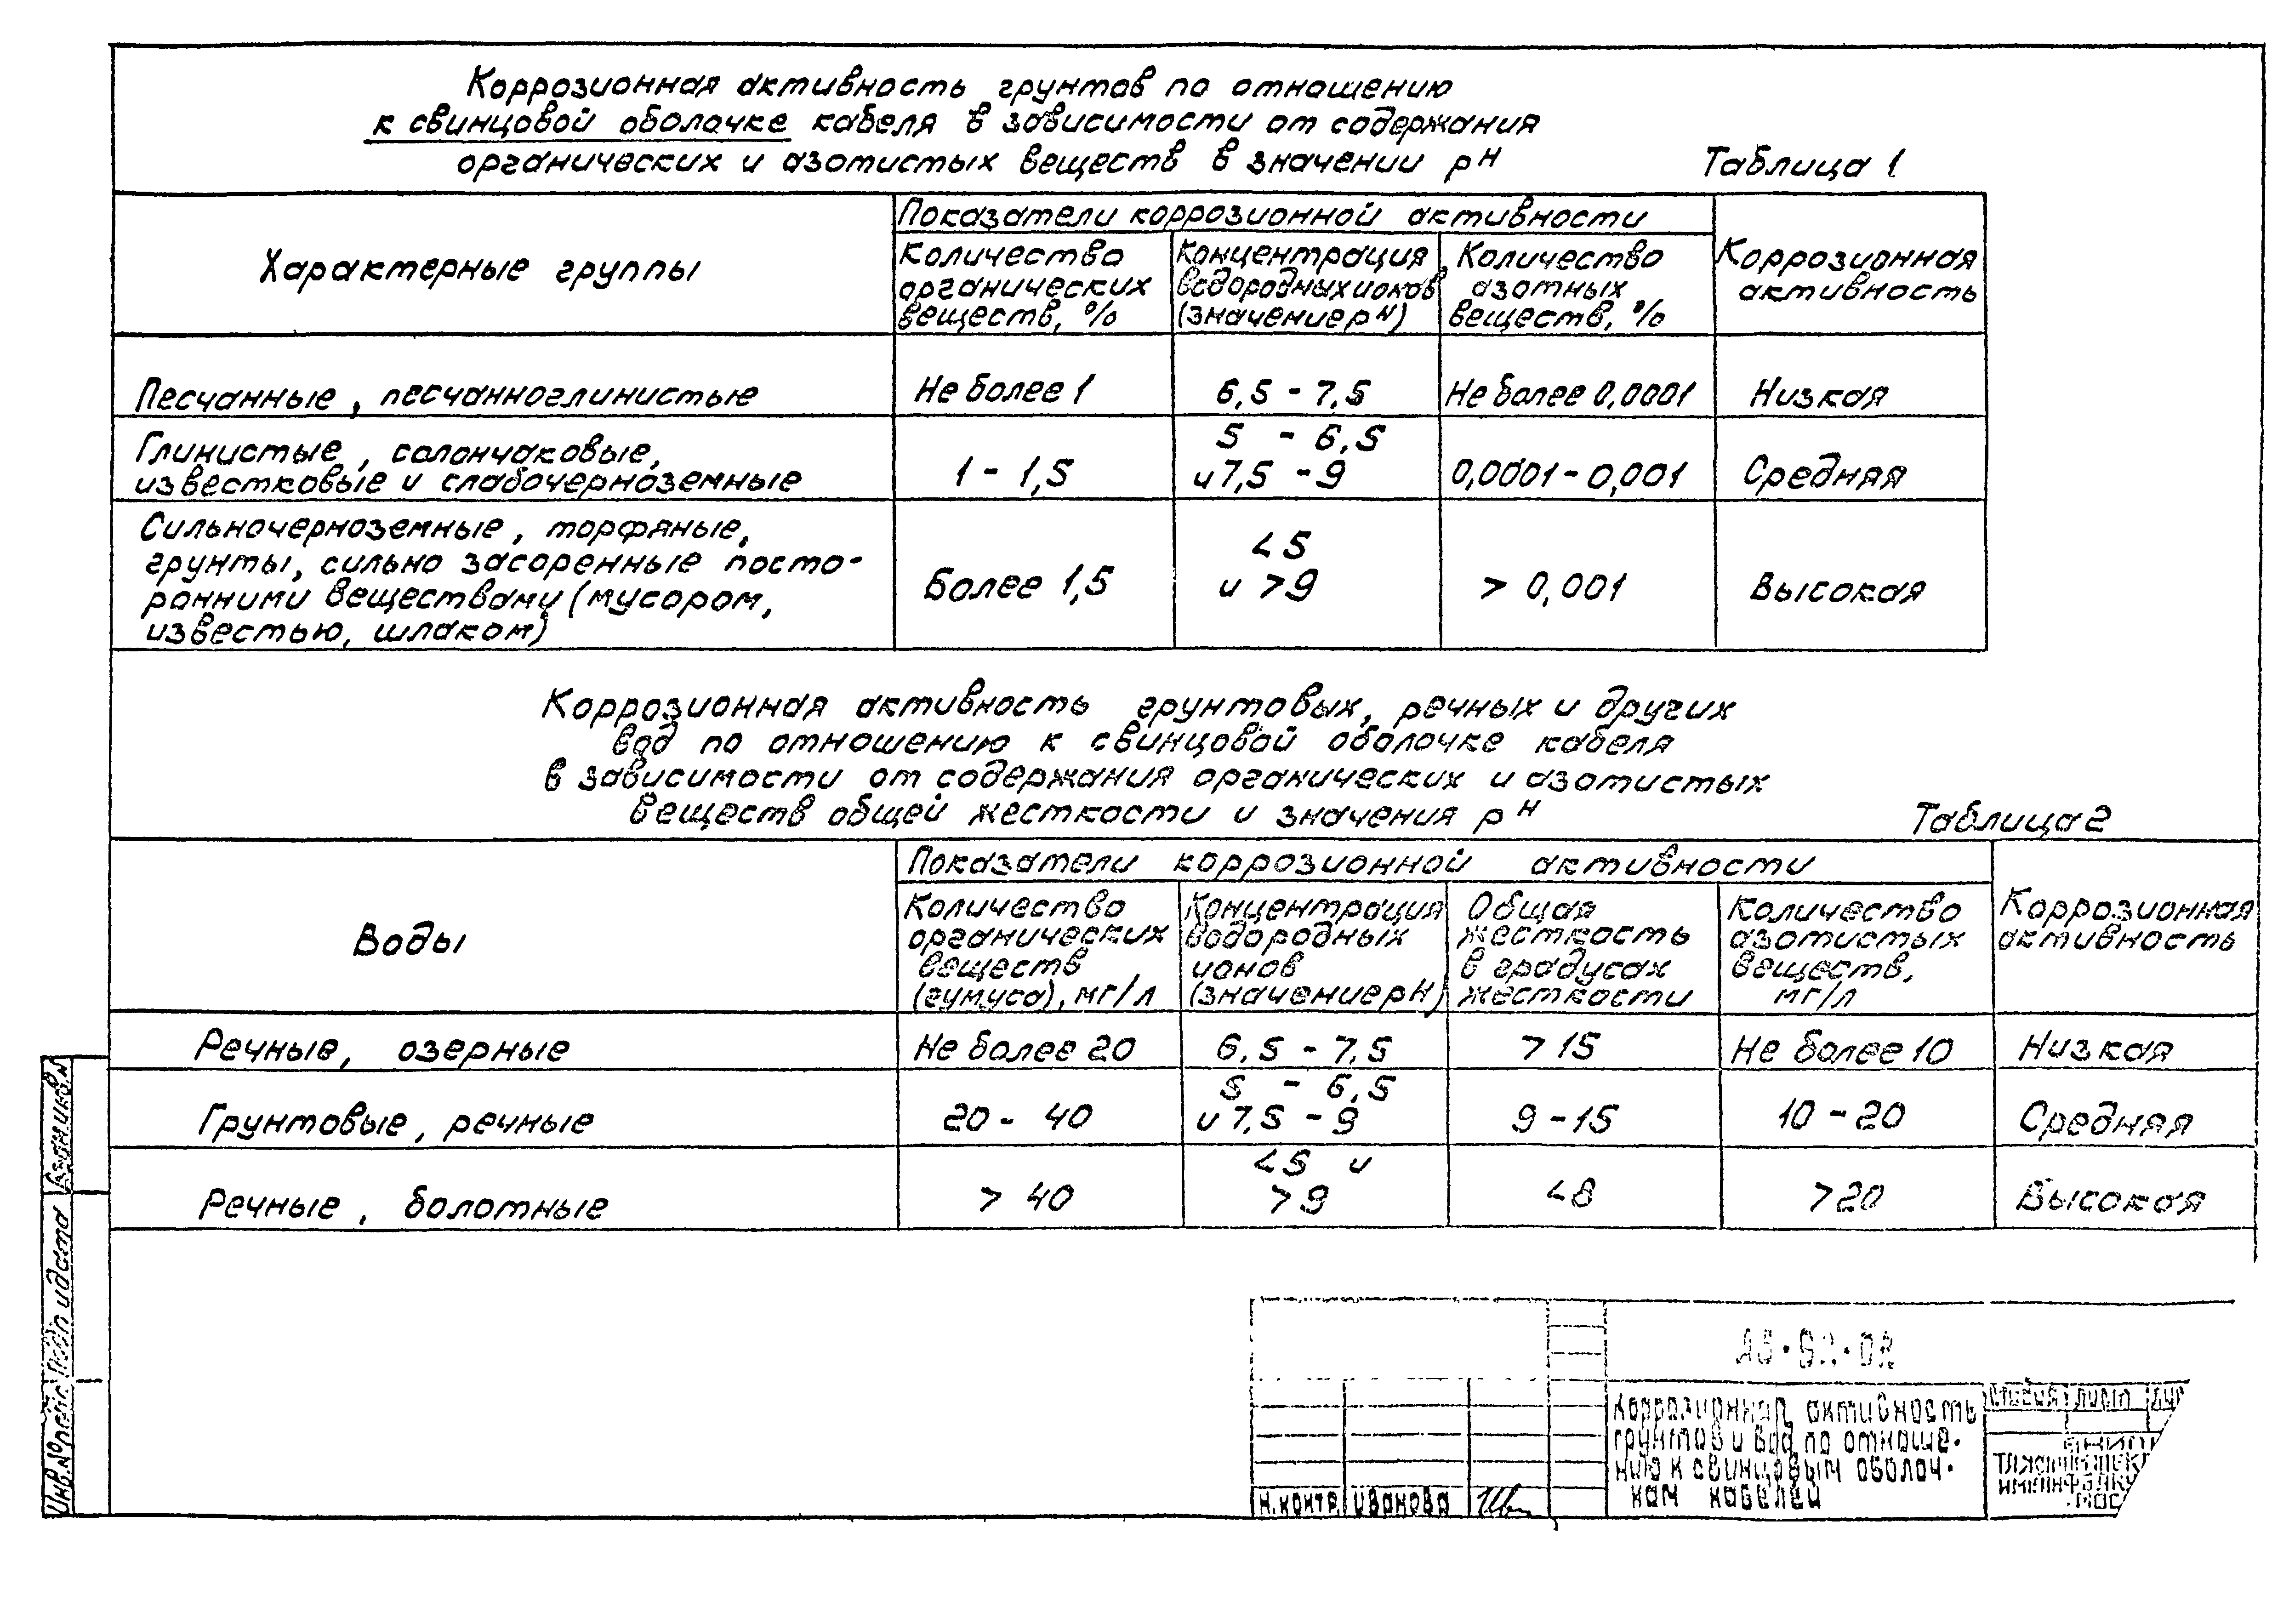 Коррозионная активность грунтов по отношению
к свинцовой оболочке кабеля в зависимости от содержания
органических и азотистых веществ в значении pH
Таблица 1
Характерные группы
Показатели коррозионной активности
Коррозионная
активность
Количество
органических
веществ, %
Концентрация
водородных ионов
(значение pH)
Количество
азотных
веществ, %
Песчанные, песчанноглинистые
Не более 1
6,5 - 7,5
Не более 0,0001
Низкая
Глинистые, солончаковые,
известковые и слабочерноземные
1 - 1,5
5 - 6,5
и 7,5 - 9
0,0001 - 0,001
Средняя
Сильночерноземные, торфяные,
грунты, сильно засоренные посто-
ронними веществами (мусором,
известью, шлаком)
Более 1,5
< 5
и > 9
> 0,001
Высокая
Коррозионная активность грунтовых, речных и других
вод по отношению к свинцовой оболочке кабеля
в зависимости от содержания органических и азотистых
веществ общей жесткости и значения pH
Таблица 2
Воды
Показатели коррозионной активности
Коррозионная
активность
Количество
органических
веществ
(гумуса), мг/л
Концентрация
водородных
ионов
(значение pH)
Общая
жесткость
в градусах
жесткости
Количество
азотистых
веществ,
мг/л
Речные, озерные
Не более 20
6,5 - 7,5
> 15
Не более 10
Низкая
Грунтовые, речные
20 - 40
5 - 6,5
и 7,5 - 9
9 - 15
10 - 20
Средняя
Речные, болотные
> 40
< 5 и
> 9
< 8
> 20
Высокая
Инв.№ подп
Подп и дата
Взам.инв.№
Коррозионная активность
грунтов и вод по отноше-
нию к свинцовым оболоч-
кам кабелей
Стадия
Лист
Н.контр.
Иванова